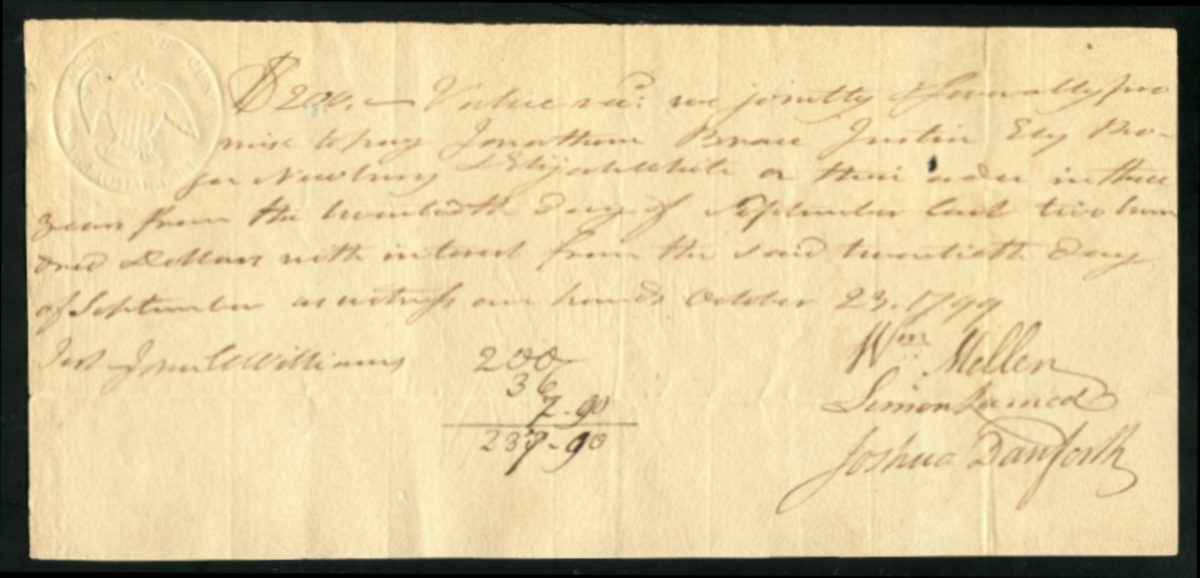 $200.— Value rec.d we jointly & severally pro
mise to pay Jonathan Brace Justin Ely Ro-
ger Newberry & Elijah White or their order in three
years from the twentieth day of September last two hun
dred Dollars with interest from the said twentieth day
of September as witness our hands October 23. 1799
Test John Williams
Wm Mellen
Simon Larned
Joshua Danforth
200
36
7-90
237-90